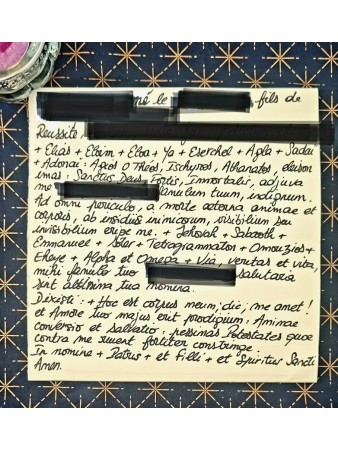 né le fils de
Reussite :
+ Elias + Eloim + Eloa + Ya + Eserchel + Agla + Sadai
+ Adonai : Agios O Théos, Ischyros, Athanatos, eleison
imas : Sanctus Deus Fortis, Immortalis, adjuva
me famulum tuum, indignum.
Ad omni periculo, a morte aeterna animae et
corporis, ab insidiis inimicorum, visibilium seu
invisibilium eripe me. + Jehovah + Sabaoth +
Emmanuel + Soter + Tetragrammaton + Omouzios +
Eheye + Alpha et Omega + Via, veritas et vita,
mihi famulo tuo salutaria
sunt adelima tua nomina.
Dixesti : + Hoc est corpus meum, die ; me amet !
et Amore tuo majus erit prodigium : Animae
conversio et salvatio : pessimas Potestates quae
contra me sment fortiter constringe
In nomine + Patris + et Filii + et Spiritus Sancti
Amen.